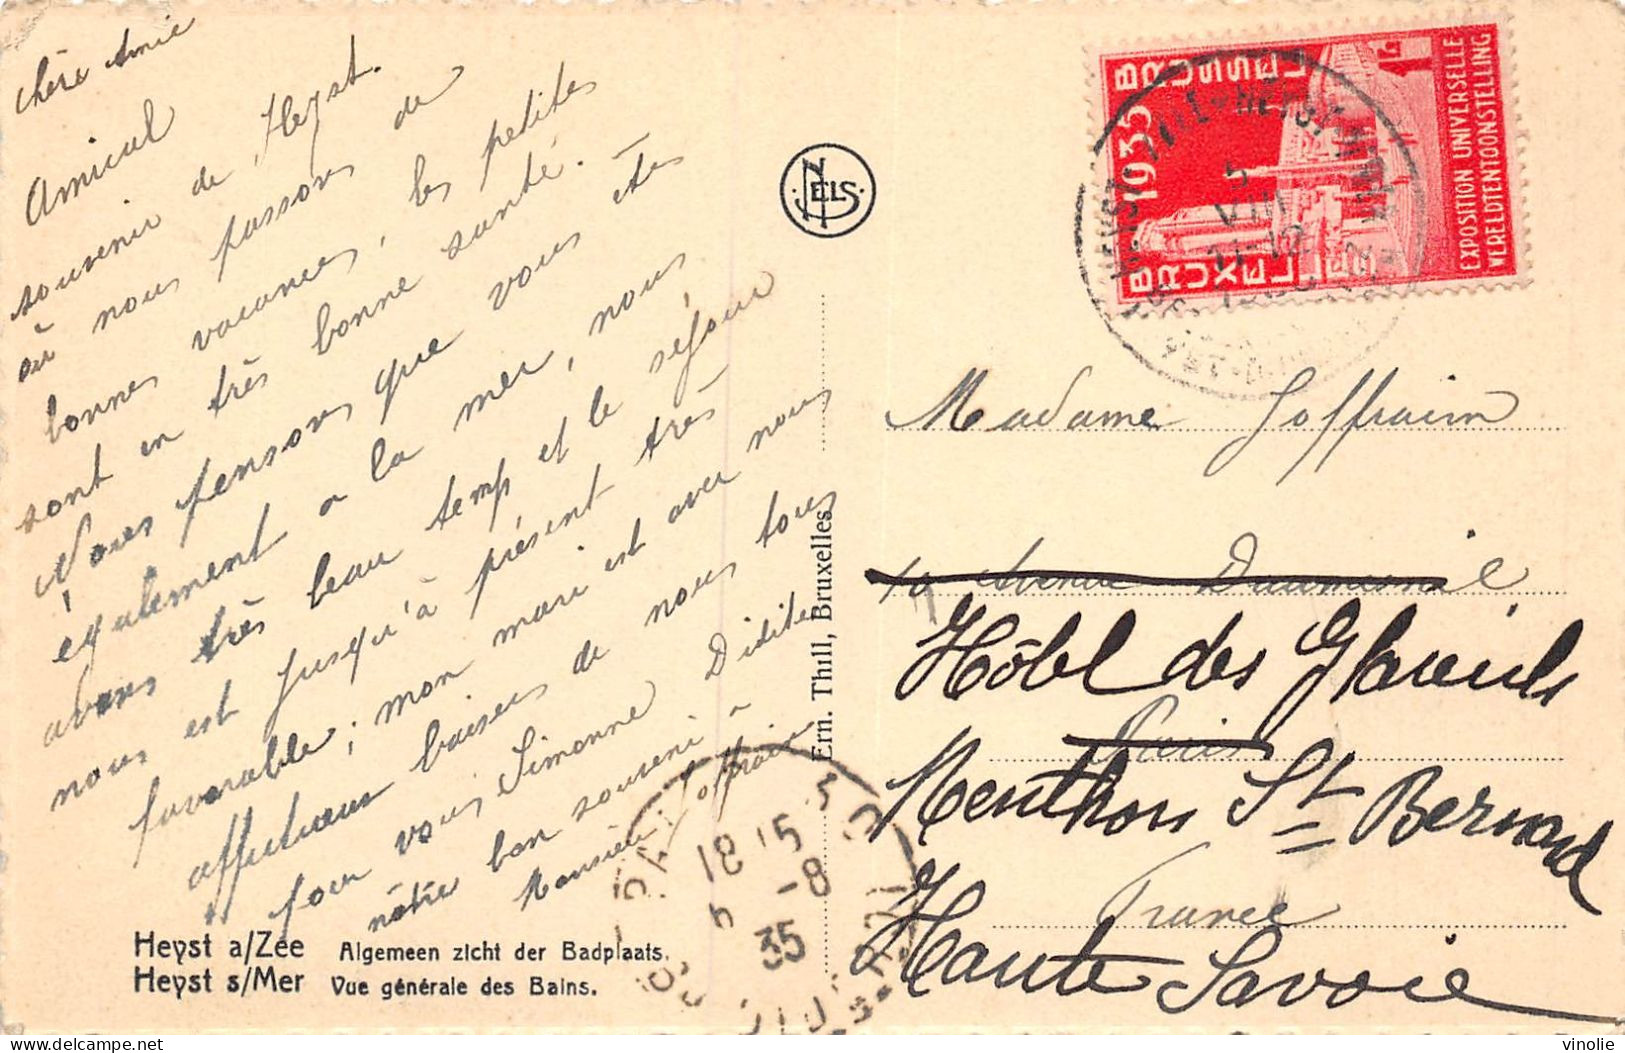 chère Amie
Amical
souvenir de Heyst.
où nous passons de
bonnes vacances, les petites
sont en très bonne santé.
Nous pensons que vous êtes
également a la mer, nous
avons très beau temp et le séjour
nous est jusqu'à présent très
favorable ; mon mari est avec nous
affectueux baisers de nous tous
pour vous Simonne Didite
nôtre bon souvenir à
Monsieur Joffrain
Heyst a/Zee Algemeen zicht der Badplaats.
Heyst s/Mer Vue générale des Bains.
NELS
Ern. Thill, Bruxelles
BRUSSEL
1935
BRUXELLES
EXPOSITION UNIVERSELLE
WERELDTENTOONSTELLING
1F
5
VIII
11-12
Madame Joffrain
10 Avenue Daumesnil
Hôtel des Glaïeuls
Paris
Menthon St Bernard
France
Haute Savoie
18 15
5 -8
35
vinolie
delcampe.net